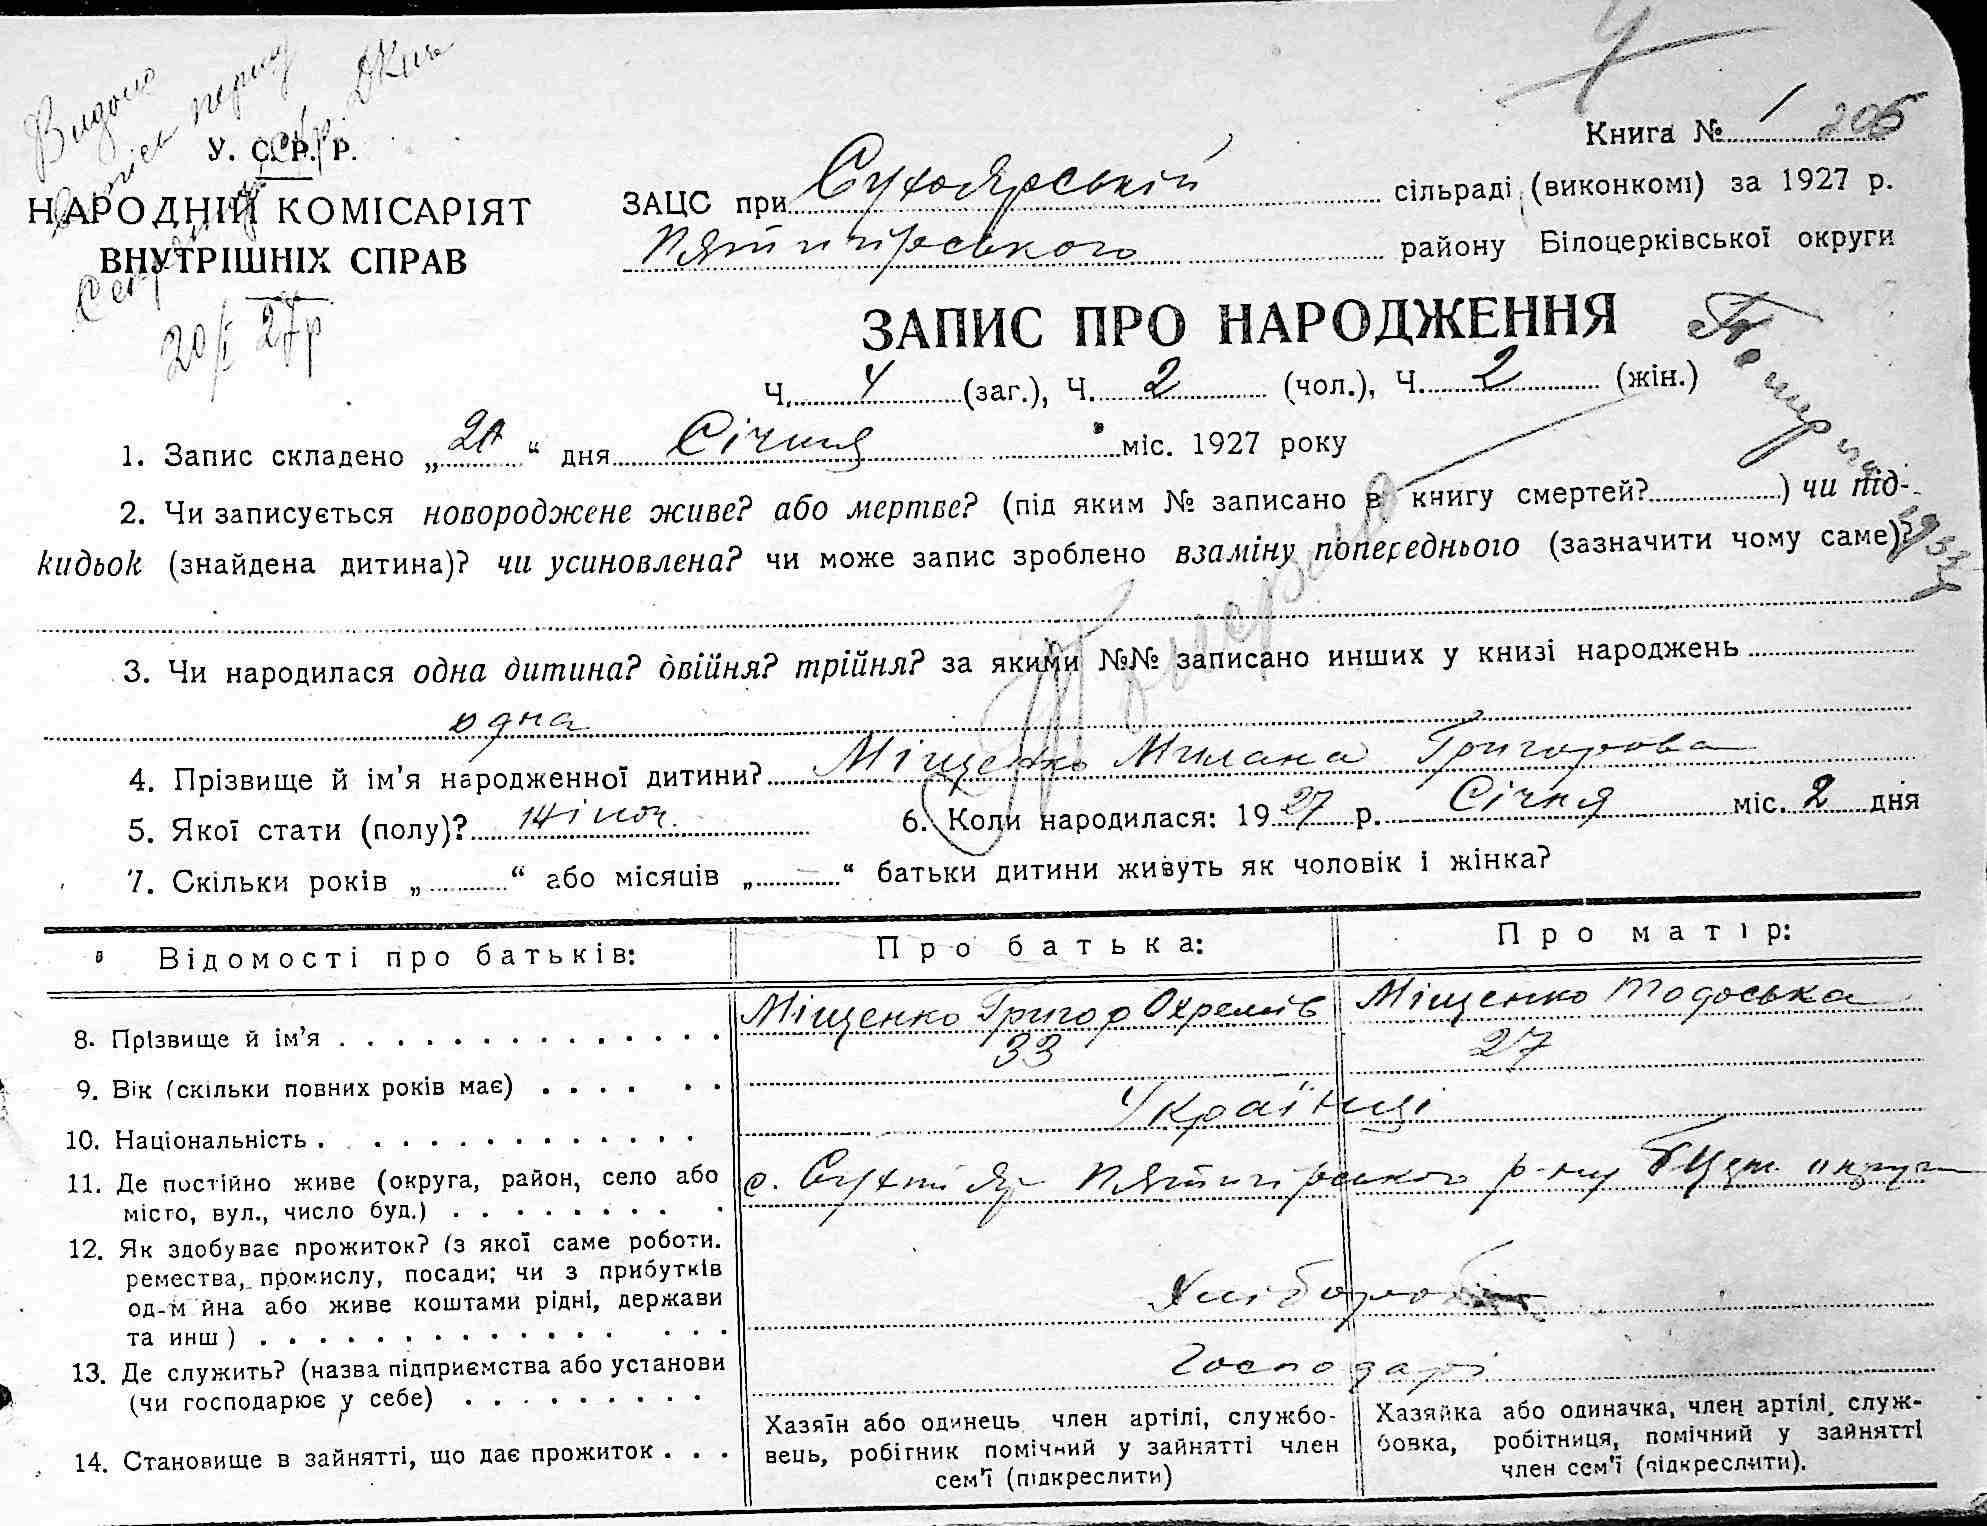 Видано
У. С. Р. Р.
НАРОДНІЙ КОМІСАРІЯТ
ВНУТРІШНІХ СПРАВ
20/I 27р
Книга № 1 206
ЗАЦС при Сухоярській сільраді (виконкомі) за 1927 р.
Пятигірського району Білоцерківської округи
ЗАПИС ПРО НАРОДЖЕННЯ
Ч. 4 (заг.), Ч. 2 (чол.), Ч. 2 (жін.)
1. Запис складено „20“ дня Січня міс. 1927 року
2. Чи записується новороджене живе? або мертве? (під яким № записано в книгу смертей? ) чи під-
кидьок (знайдена дитина)? чи усиновлена? чи може запис зроблено взаміну попереднього (зазначити чому саме)?
3. Чи народилася одна дитина? двійня? трійня? за якими №№ записано инших у книзі народжень
одна
4. Прізвище й ім’я народженної дитини? Міщенко Милана Григорова
5. Якої стати (полу)? жіноч. 6. Коли народилася: 1927 р. Січня міс. 2 дня
7. Скільки років „ “ або місяців „ “ батьки дитини живуть як чоловік і жінка?
Відомості про батьків: Про батька: Про матір:
8. Прізвище й ім’я Міщенко Григор Охремів Міщенко Тодоська
9. Вік (скільки повних років має) 33 27
10. Національність Українці
11. Де постійно живе (округа, район, село або
місто, вул., число буд.) с. Сухий Яр Пятигірського р-ну БЦерк. округи
12. Як здобуває прожиток? (з якої саме роботи.
ремества, промислу, посади; чи з прибутків
од-м йна або живе коштами рідні, держави
та инш) Хлібороби
13. Де служить? (назва підприємства або установи
(чи господарює у себе) Господарі
14. Становище в зайнятті, що дає прожиток
Хазяїн або одинець член артілі, службо-
вець, робітник помічний у зайнятті член
сем’ї (підкреслити)
Хазяйка або одиначка, член артілі, служ-
бовка, робітниця, помічний у зайнятті
член сем’ї (підкреслити).